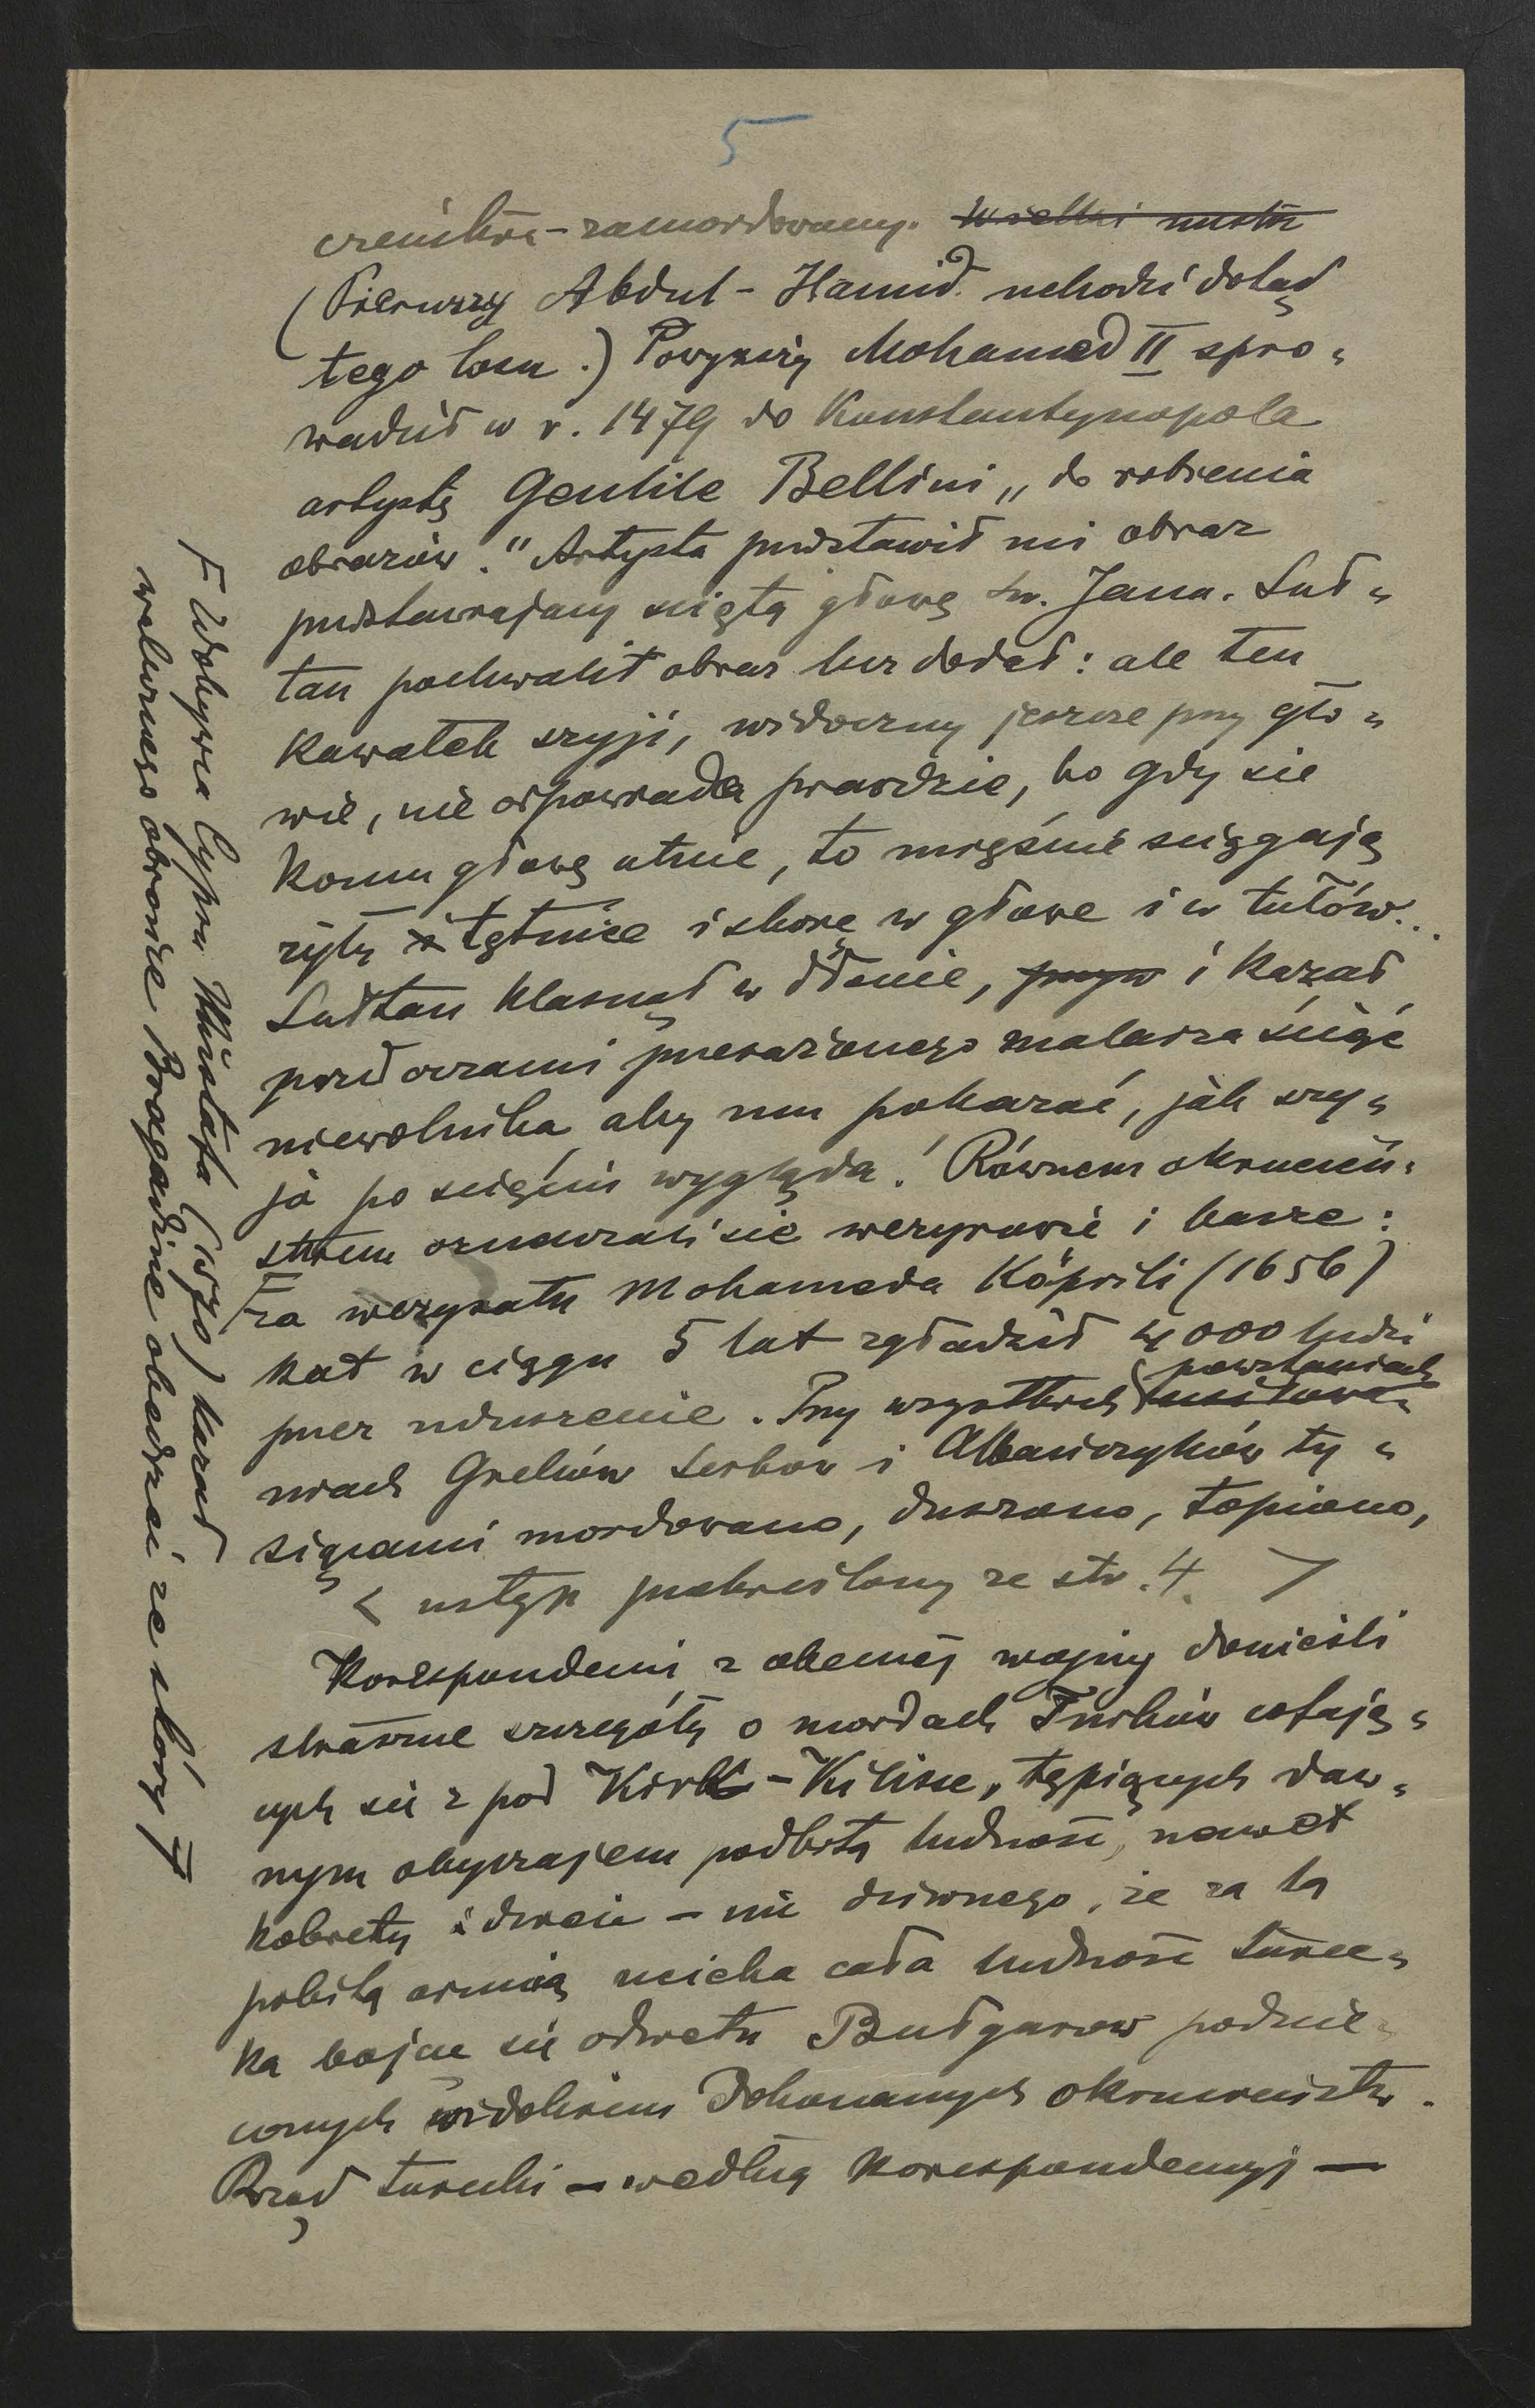 5
czeńców - zamordowany. Wielki mistrz
(Pierwszy Abdul-Hamid uchodzi dotąd
tego losu.) Powyższy Mohamed II spro-
wadził w r. 1479 do Konstantynopola
artystę Gentile Bellini „do robienia
obrazów." Artysta przedstawił mi obraz
przedstawiający ściętą głowę św. Jana. Suł-
tan pochwalił obraz lecz dodał: ale ten
kawałek szyji, widoczny jeszcze przy gło-
wie, nie odpowiada prawdzie, bo gdy się
komu głowę utnie, to mięśnie ściągają
żyły i tętnice i skórę w głowę i w tułów...
Sułtan klasnął w dłonie, i kazał
przed oczami przerażonego malarza ściąć
niewolnika aby mu pokazać, jak szy-
ja po ścięciu wygląda! Równem okrucień-
stwem oznaczali się wezyrowie i basze:
Ⱶ za wezyratu Mohameda Köprili (1656)
kat w ciągu 5 lat zgładził 4000 ludzi
przez uduszenie. Przy wszystkich powstaniach usiłowa-
niach Greków Serbów i Albańczyków ty-
siącami mordowano, duszono, topiono,
< ustęp przekreślony ze str. 4. >
Korespondenci z obecnej wojny donieśli
straszne szczegóły o mordach Turków cofają-
cych się z pod Kirk-Kilisse, tępiących daw-
nym obyczajem podbitą ludność, nawet
kobiety i dzieci - nic dziwnego, że za tą
pobitą armią ucieka cała ludność turec-
ka bojąc się odwetu Bułgarów podnie-
conych widokiem dokonanych okrucieństw.
Rząd turecki - według korespondencyj -
Ⱶ Zdobywca Cypru Mustafa (1570) kazał
walecznego obrońcę Bragadine obedrzeć ze skóry Ⱶ